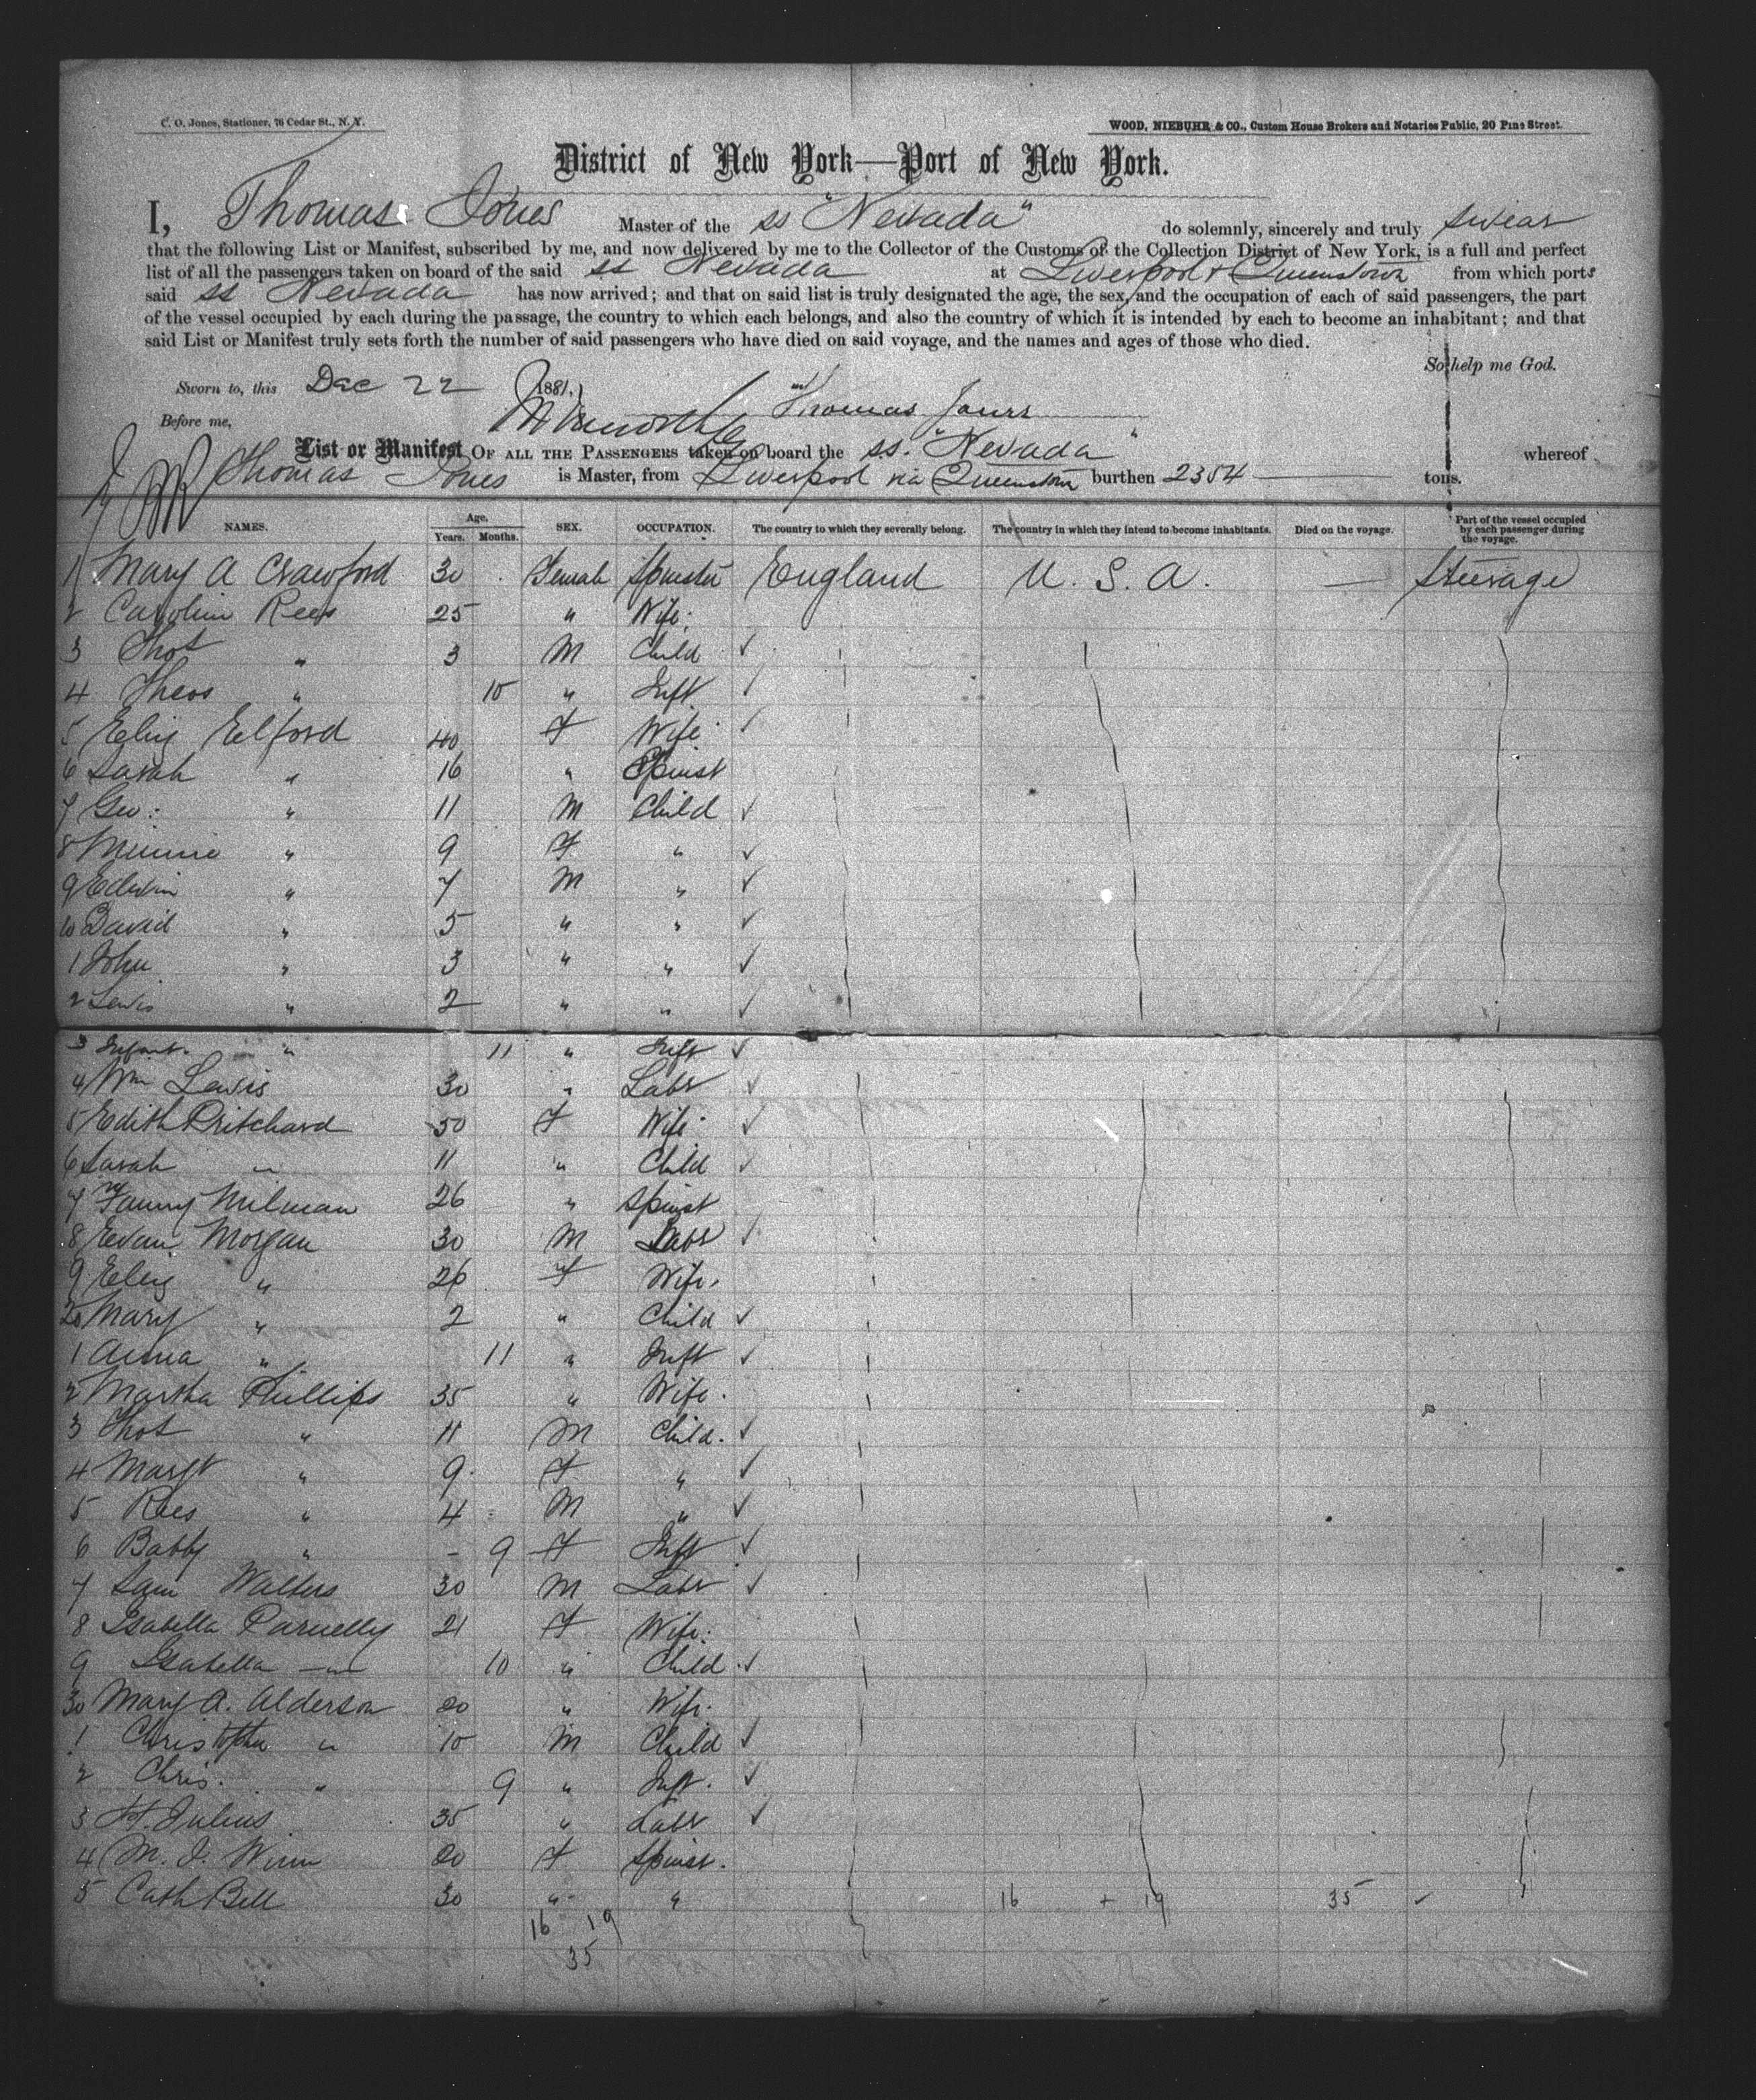 C. O. Jones, Stationer, 76 Cedar St., N. Y.
WOOD, NIEBUHR & CO., Custom House Brokers and Notaries Public, 20 Pine Street.
District of New York—Port of New York.
I, Thomas Jones Master of the ss "Nevada" do solemnly, sincerely and truly swear
that the following List or Manifest, subscribed by me, and now delivered by me to the Collector of the Customs of the Collection District of New York, is a full and perfect
list of all the passengers taken on board of the said ss Nevada at Liverpool & Queenstown from which ports
said ss Nevada has now arrived; and that on said list is truly designated the age, the sex, and the occupation of each of said passengers, the part
of the vessel occupied by each during the passage, the country to which each belongs, and also the country of which it is intended by each to become an inhabitant; and that
said List or Manifest truly sets forth the number of said passengers who have died on said voyage, and the names and ages of those who died.
So help me God.
Sworn to, this Dec 22 1881.
Thomas Jones
Before me,
List or Manifest OF ALL THE PASSENGERS taken on board the ss. "Nevada" whereof
Thomas Jones is Master, from Liverpool via Queenstown burthen 2354 tons.
NAMES. Age. Years. Months. SEX. OCCUPATION. The country to which they severally belong. The country in which they intend to become inhabitants. Died on the voyage. Part of the vessel occupied by each passenger during the voyage.
1 Mary A Crawford 30 Female Spinster England U. S. A. — Steerage
2 Carolin Rees 25 " Wife
3 Thos " 3 M Child
4 Theos " 10 " Inft
5 Eliz Elford 40 F Wife
6 Sarah " 16 " Spinst
7 Geo: " 11 M Child
8 Minnie " 9 F "
9 Edwin " 7 M "
10 David " 5 " "
1 John " 3 " "
2 Lewis " 2 " "
3 Infant " 11 " Inft
4 Wm Lewis 30 " Labr
5 Edith Pritchard 50 F Wife
6 Sarah " 11 " Child
7 Fanny Milman 26 " Spinst
8 Evan Morgan 30 M Labr
9 Eliz " 26 F Wife
20 Mary " 2 " Child
1 Anna " 11 " Inft
2 Martha Phillips 35 " Wife
3 Thos " 11 M Child
4 Margt " 9 F "
5 Rees " 4 M "
6 Babby " - 9 F Inft
7 Sam Walters 30 M Labr
8 Isabella 21 F Wife
9 Isabella " 10 " Child
30 Mary A. Alderson 20 " Wife
1 Christopher " 10 M Child
2 Chris. " 9 " Inft.
3 Julius 35 " Labr
4 M. J. Winn 20 F Spinst.
5 Cath Bell 30 " " 16 + 19 35
16 19
35